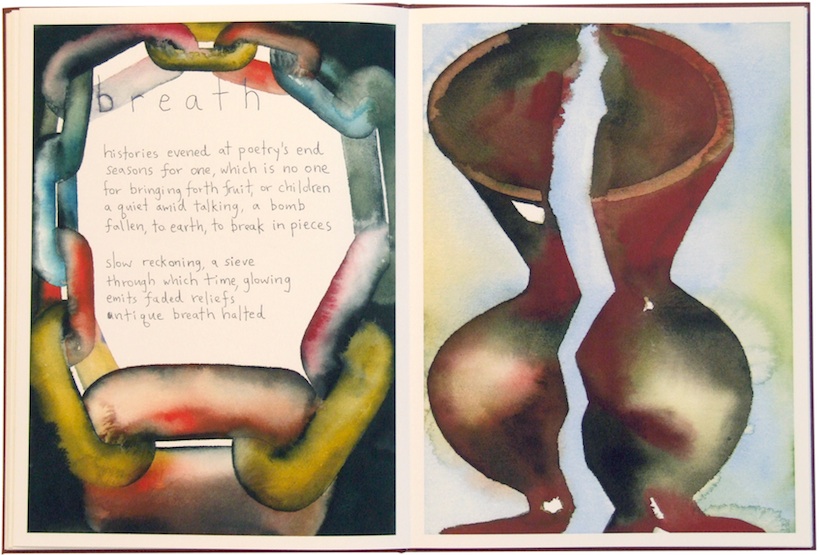 breath
histories evened at poetry's end
seasons for one, which is no one
for bringing forth fruit, or children
a quiet amid talking, a bomb
fallen, to earth, to break in pieces
slow reckoning, a sieve
through which time, glowing
emits faded reliefs
antique breath halted